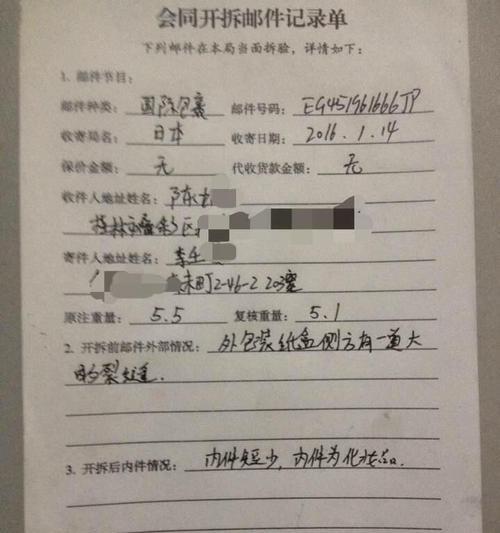 会同开拆邮件记录单
下列邮件在本局当面拆验，详情如下：
1. 邮件节目：
邮件种类： 国际包裹 邮件号码： EG451961666JP
收寄局名： 日本 收寄日期： 2016.1.14
保价金额： 无 代收货款金额： 无
收件人地址姓名： 陈
桂林市叠彩区
寄件人地址姓名： 李
末町2-46-2 203室
原注重量： 5.5 复核重量： 5.1
2. 开拆前邮件外部情况： 外包装纸盒侧方有一道大
的裂缝.
3. 开拆后内件情况： 内件短少，内件为化妆品.